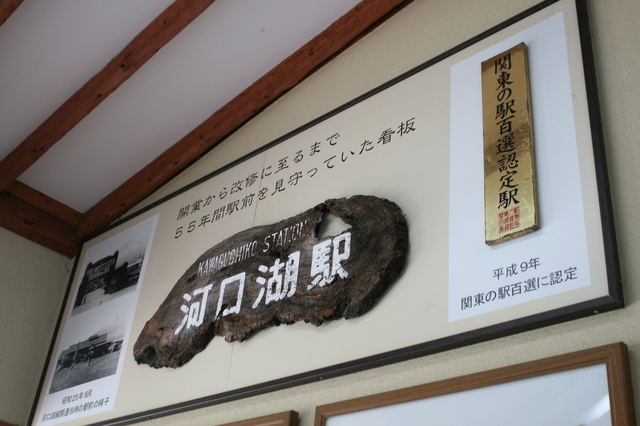 開業から改修に至るまで
55年間駅前を見守っていた看板
KAWAGUCHIKO STATION
河口湖駅
関東の駅百選認定駅
平成9年
関東の駅百選に認定
昭和25年8月
河口湖線開通当時の駅前の様子